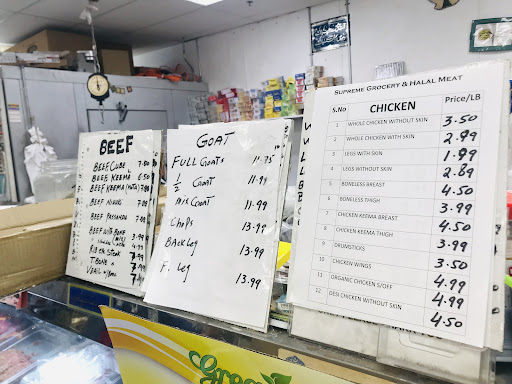 SUPREME GROCERY & HALAL MEAT
S.No CHICKEN Price/LB
1 WHOLE CHICKEN WITHOUT SKIN 3.50
2 WHOLE CHICKEN WITH SKIN 2.99
3 LEGS WITH SKIN 1.99
4 LEGS WITHOUT SKIN 2.89
5 BONELESS BREAST 4.50
6 BONELESS THIGH 3.99
7 CHICKEN KEEMA BREAST 4.50
8 CHICKEN KEEMA THIGH 3.99
9 DRUMSTICKS 3.50
10 CHICKEN WINGS 4.99
11 ORGANIC CHICKEN S/OFF 4.99
12 DESI CHICKEN WITHOUT SKIN 4.50
GOAT
FULL GOATS 11.75
1/2 GOAT 11.99
MIX GOAT 11.99
CHOPS 13.99
BACK LEG 13.99
F. LEG 13.99
BEEF
BEEF CUBE 7.50
BEEF KEEMA 6.50
BEEF KEEMA 7.00
BEEF NIHARI 7.00
BEEF PASSANDA 7.00
BEEF WITH BONE 3.99
RIB EYE STEAK
T BONE
VEAL